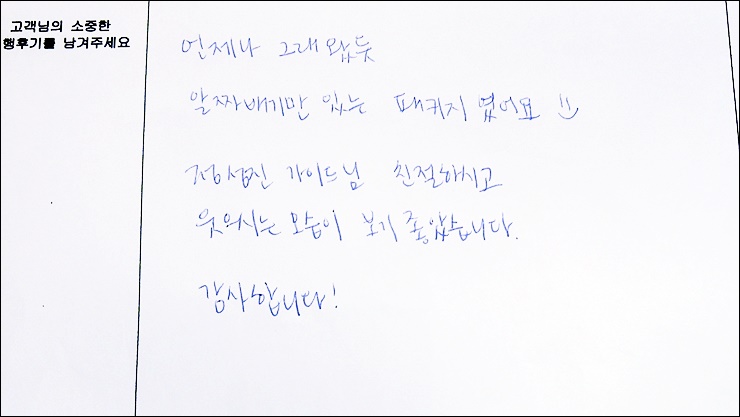 고객님의 소중한
행후기를 남겨주세요
언제나 그래왔듯
알짜배기만 있는 패키지 였어요 :)
정섭진 가이드님 친절하시고
웃으시는 모습이 보기 좋았습니다.
감사합니다!